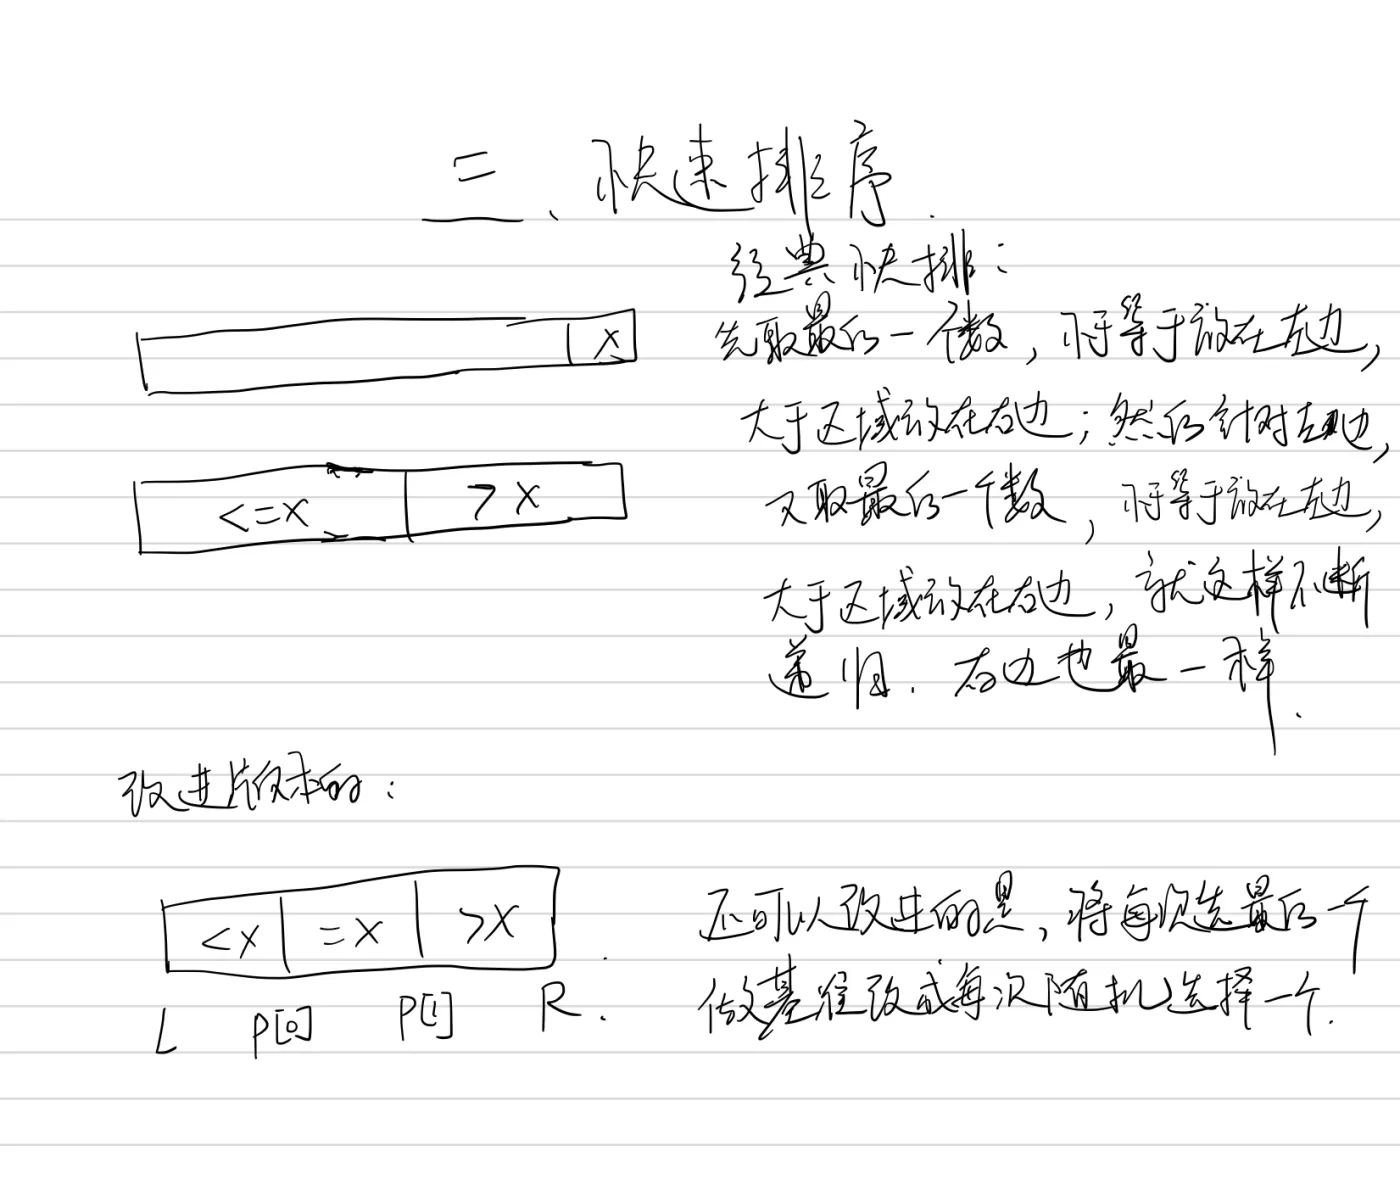 二、快速排序.
经典快排:
x
先取最后一个数, 将等于放在左边,
大于区域放在右边; 然后针对左边,
<=x >x
又取最后一个数, 将等于放在左边,
大于区域放在右边, 就这样不断
递归. 右边也是一样.
改进版本的:
<x =x >x
L P[0] P[1] R.
还可以改进的是, 将每次选最后一个
做基准改成每次随机选择一个.